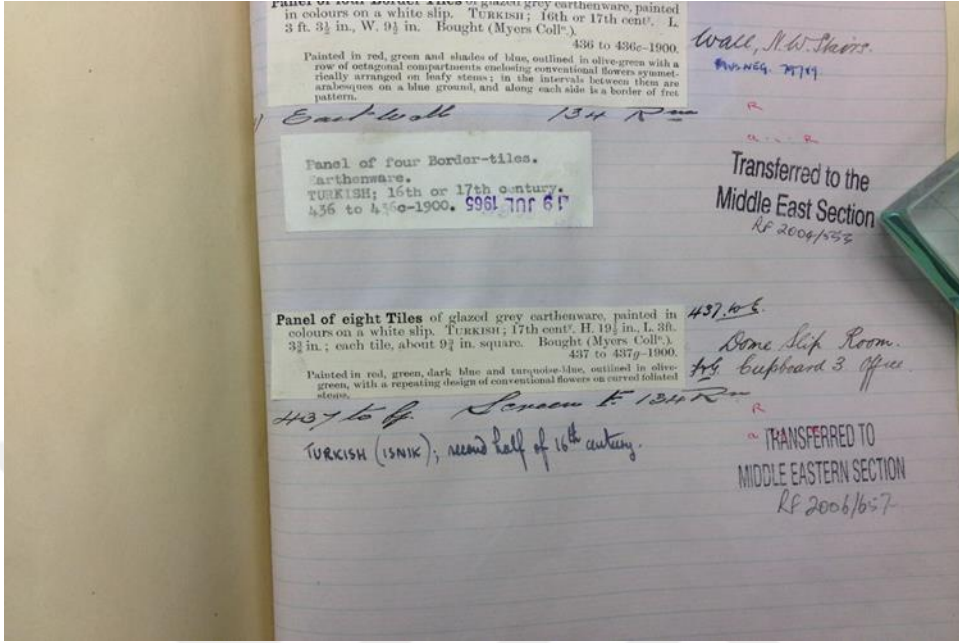 Panel of four Border Tiles of glazed grey earthenware, painted
in colours on a white slip. TURKISH; 16th or 17th centy. L.
3 ft. 3½ in., W. 9½ in. Bought (Myers Colln.).
436 to 436c-1900.
Painted in red, green and shades of blue, outlined in olive-green with a
row of octagonal compartments enclosing conventional flowers symmet-
rically arranged on leafy stems; in the intervals between them are
arabesques on a blue ground, and along each side is a border of fret
pattern.
Wall, N.W. Stairs.
MUS NEG.
R
East wall 134 Rm
R
Panel of four Border-tiles.
Earthenware.
TURKISH; 16th or 17th century.
436 to 436c-1900. 19 JUL 1965
Transferred to the
Middle East Section
RF 2004/553
Panel of eight Tiles of glazed grey earthenware, painted in
colours on a white slip. TURKISH; 17th centy. H. 19½ in., L. 3ft.
3¾ in.; each tile, about 9¾ in. square. Bought (Myers Colln.).
437 to 437g-1900.
Painted in red, green, dark blue and turquoise-blue, outlined in olive-
green, with a repeating design of conventional flowers on curved foliated
stems.
437 to
Dome Slip Room.
Cupboard 3 Office
437 to g. Screen E 134 Rm
R
TURKISH (ISNIK); second half of 16th century.
TRANSFERRED TO
MIDDLE EASTERN SECTION
RF 2006/657